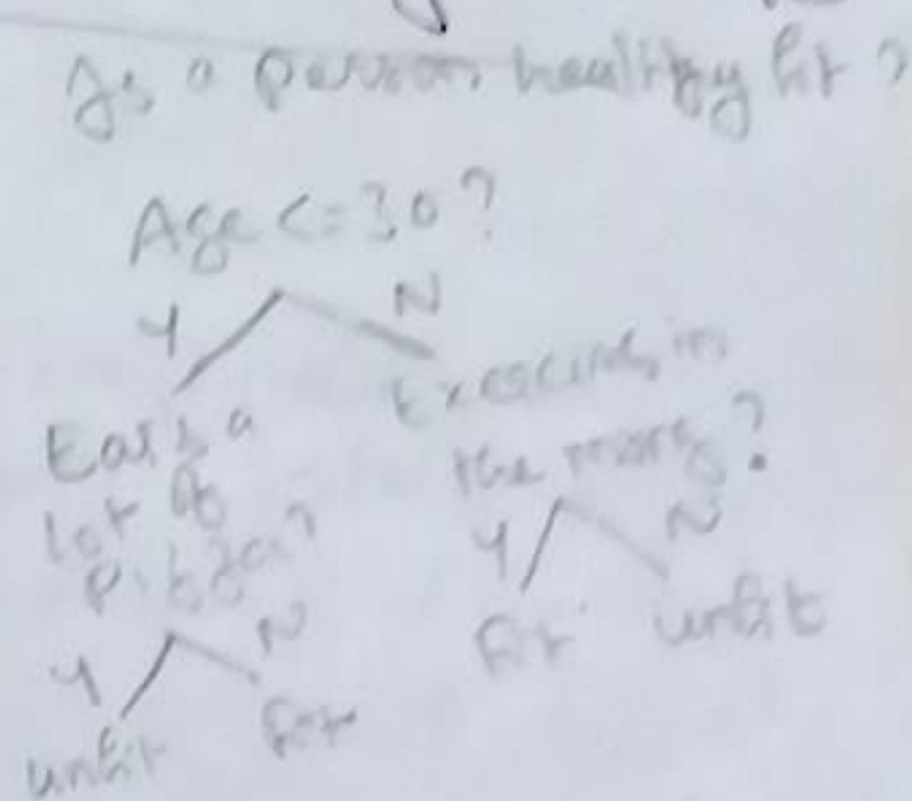 Is a person healthy fit ?
Age <= 30 ?
Y N
Eats a
lot of
Pizza?
Exercises in
the morg ?
Y N
fit unfit
Y N
unfit fit